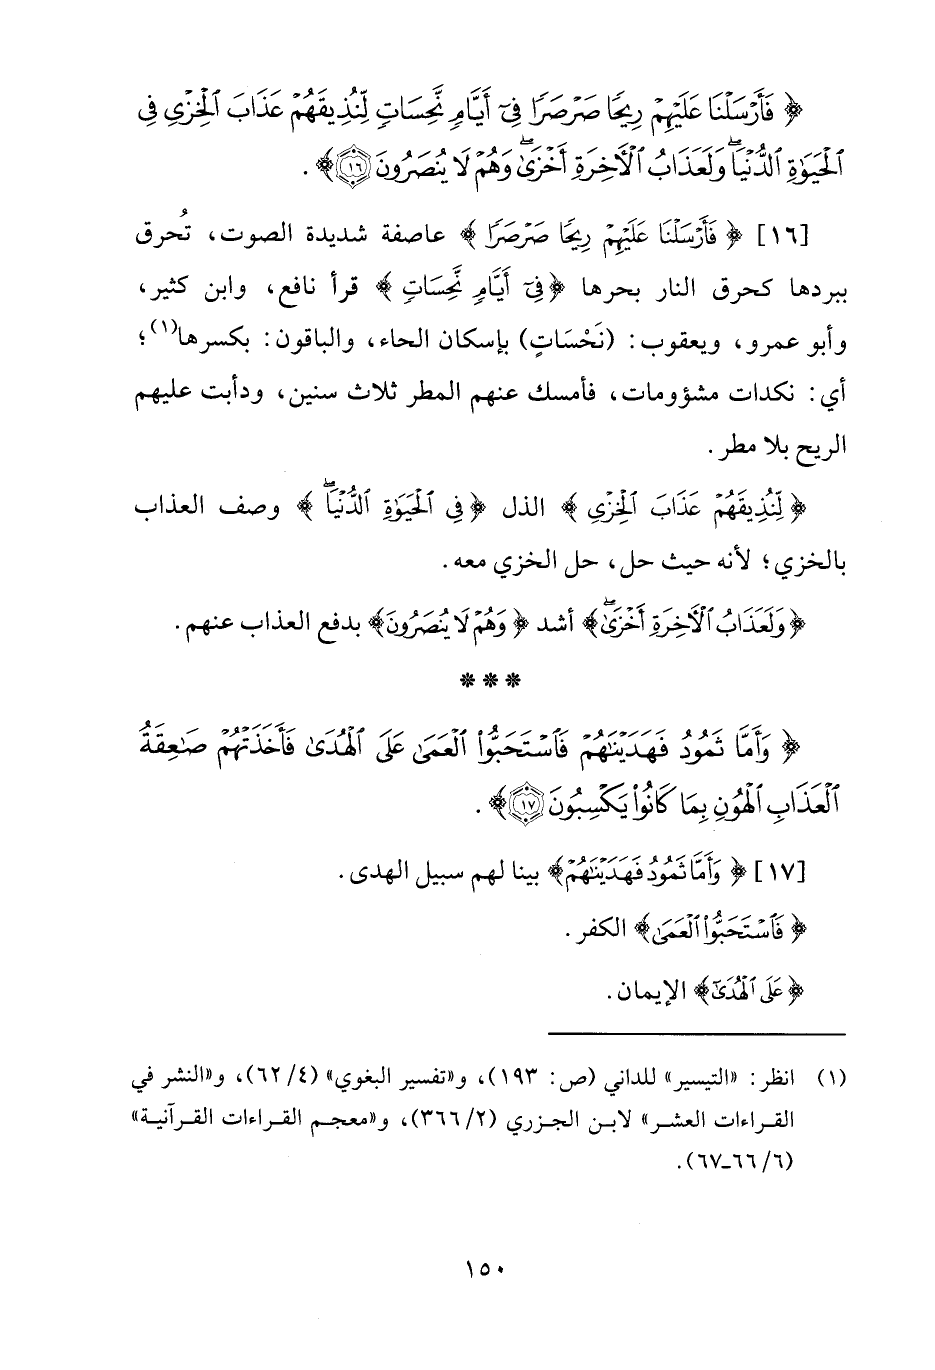 ﴿ فَأَرْسَلْنَا عَلَيْهِمْ رِيحًا صَرْصَرًا فِىٓ أَيَّامٍ نَّحِسَاتٍ لِّنُذِيقَهُمْ عَذَابَ ٱلْخِزْىِ فِى
ٱلْحَيَوٰةِ ٱلدُّنْيَا ۖ وَلَعَذَابُ ٱلْأَخِرَةِ أَخْزَىٰ ۖ وَهُمْ لَا يُنصَرُونَ ١٦ ﴾ .
[١٦] ﴿ فَأَرْسَلْنَا عَلَيْهِمْ رِيحًا صَرْصَرًا ﴾ عاصفة شديدة الصوت، تُحرق
ببردها كحرق النار بحرها ﴿ فِىٓ أَيَّامٍ نَّحِسَاتٍ ﴾ قرأ نافع، وابن كثير،
وأبو عمرو، ويعقوب: (نَحْسَاتٍ) بإسكان الحاء، والباقون: بكسرها(١)؛
أي: نكدات مشؤومات، فأمسك عنهم المطر ثلاث سنين، ودأبت عليهم
الريح بلا مطر.
﴿ لِّنُذِيقَهُمْ عَذَابَ ٱلْخِزْىِ ﴾ الذل ﴿ فِى ٱلْحَيَوٰةِ ٱلدُّنْيَا ۖ ﴾ وصف العذاب
بالخزي؛ لأنه حيث حل، حل الخزي معه.
﴿ وَلَعَذَابُ ٱلْأَخِرَةِ أَخْزَىٰ ۖ ﴾ أشد ﴿ وَهُمْ لَا يُنصَرُونَ ﴾ بدفع العذاب عنهم.
* * *
﴿ وَأَمَّا ثَمُودُ فَهَدَيْنَٰهُمْ فَٱسْتَحَبُّوا۟ ٱلْعَمَىٰ عَلَى ٱلْهُدَىٰ فَأَخَذَتْهُمْ صَٰعِقَةُ
ٱلْعَذَابِ ٱلْهُونِ بِمَا كَانُوا۟ يَكْسِبُونَ ١٧ ﴾ .
[١٧] ﴿ وَأَمَّا ثَمُودُ فَهَدَيْنَٰهُمْ ﴾ بينا لهم سبيل الهدى.
﴿ فَٱسْتَحَبُّوا۟ ٱلْعَمَىٰ ﴾ الكفر.
﴿ عَلَى ٱلْهُدَىٰ ﴾ الإيمان.
(١) انظر: «التيسير» للداني (ص: ١٩٣)، و«تفسير البغوي» (٤/ ٦٢)، و«النشر في
القراءات العشر» لابن الجزري (٢/ ٣٦٦)، و«معجم القراءات القرآنية»
(٦/ ٦٦-٦٧).
١٥٠